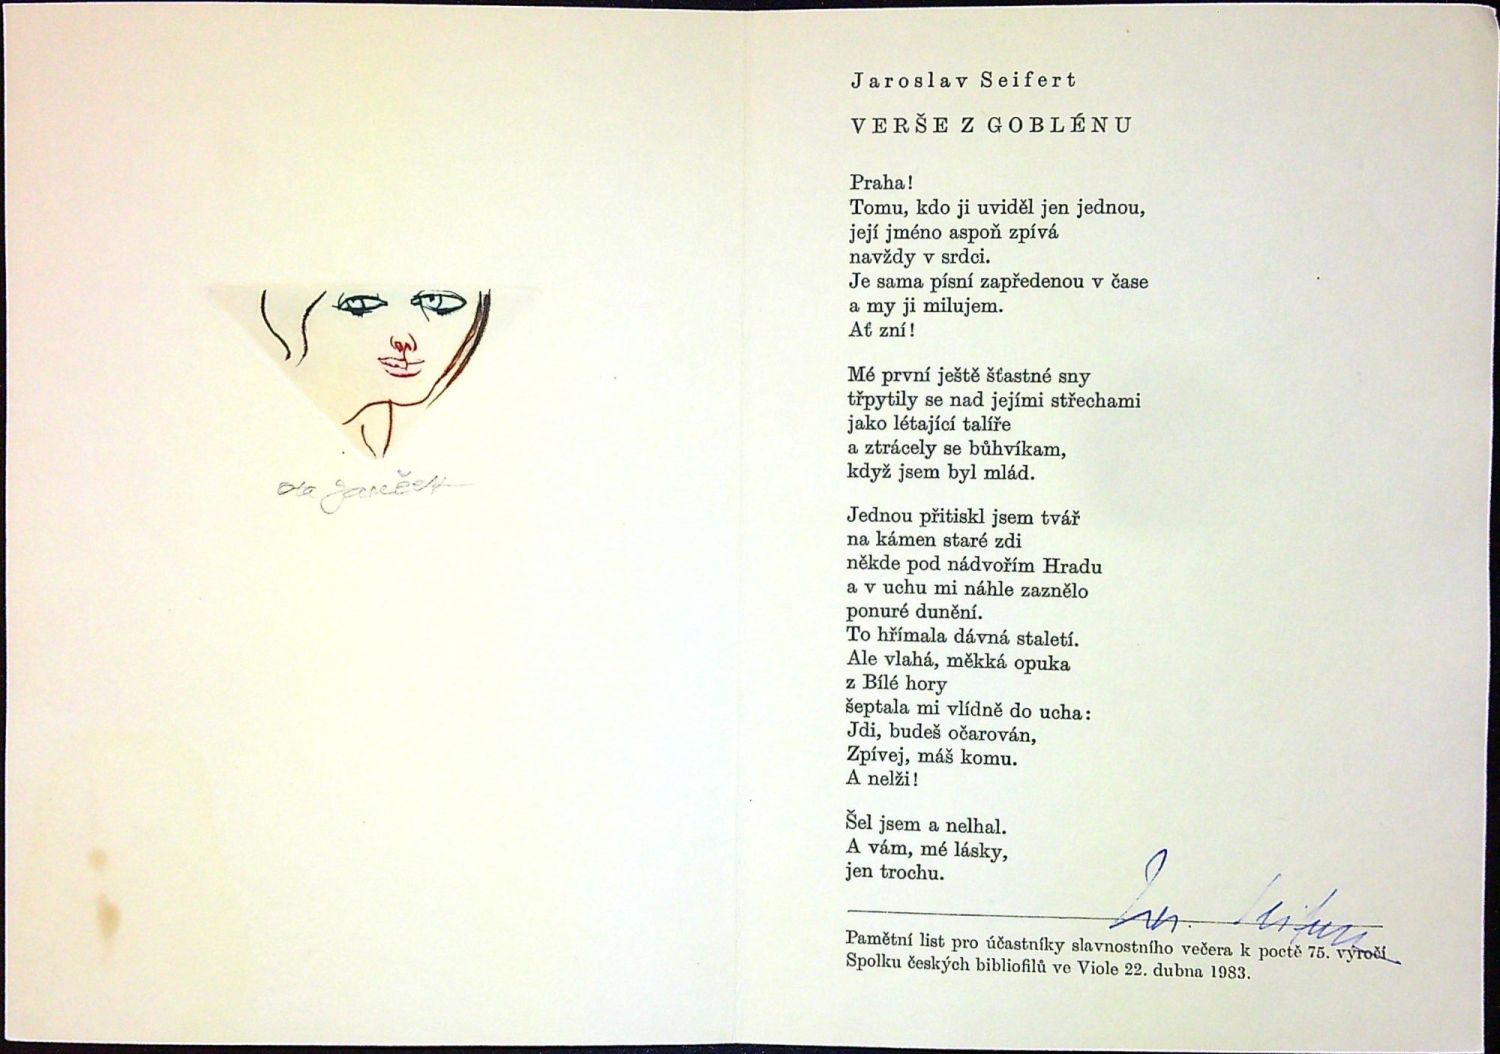 Ota Janeček
Jaroslav Seifert
VERŠE Z GOBLÉNU
Praha!
Tomu, kdo ji uviděl jen jednou,
její jméno aspoň zpívá
navždy v srdci.
Je sama písní zapředenou v čase
a my ji milujem.
Ať zní!
Mé první ještě šťastné sny
třpytily se nad jejími střechami
jako létající talíře
a ztrácely se bůhvíkam,
když jsem byl mlád.
Jednou přitiskl jsem tvář
na kámen staré zdi
někde pod nádvořím Hradu
a v uchu mi náhle zaznělo
ponuré dunění.
To hřímala dávná staletí.
Ale vlahá, měkká opuka
z Bílé hory
šeptala mi vlídně do ucha:
Jdi, budeš očarován,
Zpívej, máš komu.
A nelži!
Šel jsem a nelhal.
A vám, mé lásky,
jen trochu.
Jar. Seifert
Pamětní list pro účastníky slavnostního večera k poctě 75. výročí
Spolku českých bibliofilů ve Viole 22. dubna 1983.